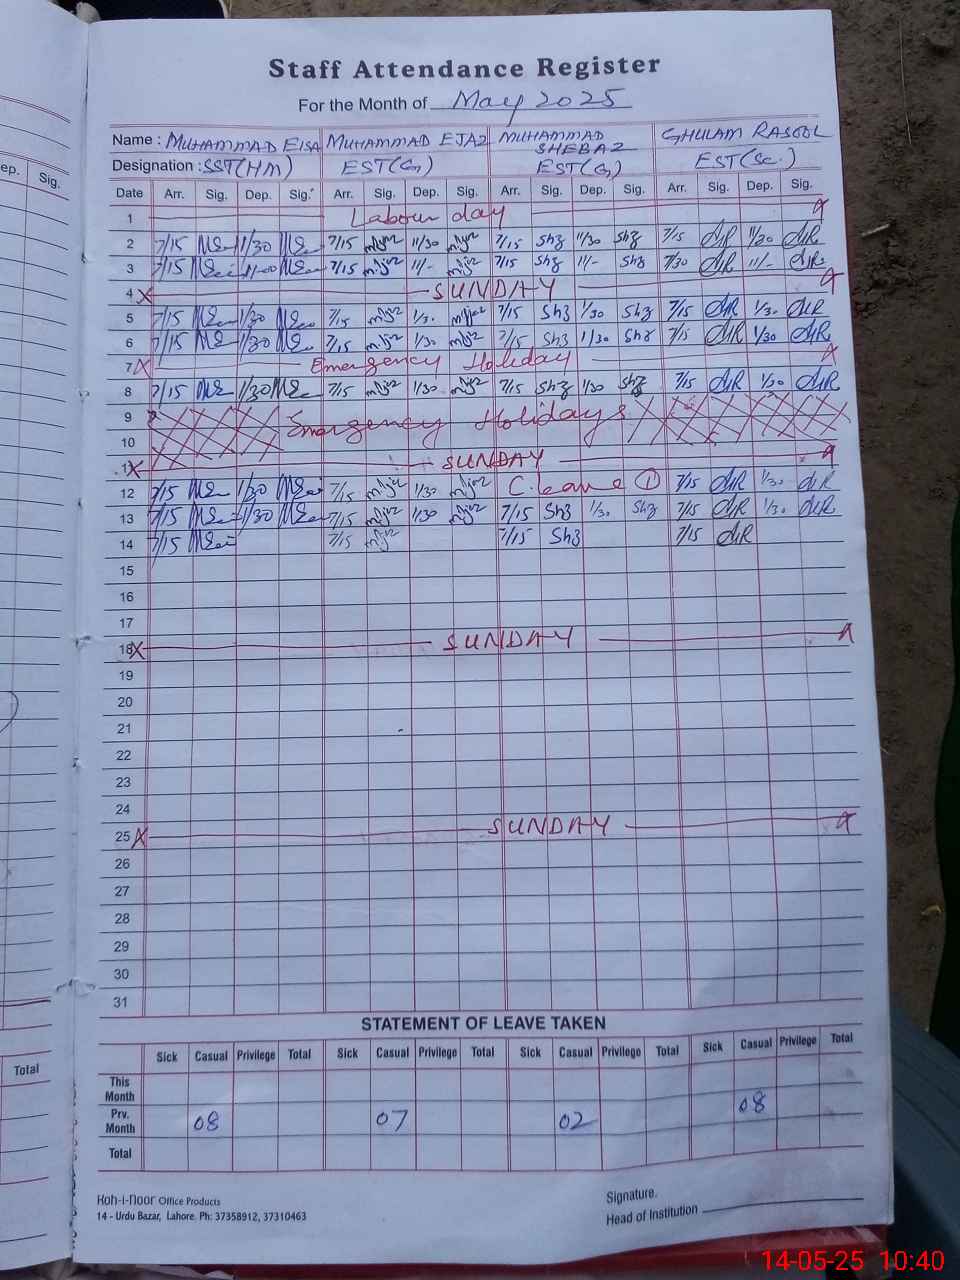 Staff Attendance Register
For the Month of May 2025
Name : MUHAMMAD EISA MUHAMMAD EJAZ MUHAMMAD SHEBAZ GHULAM RASOOL
Designation : SST(HM) EST(G) EST(G) EST(Sc.)
Date Arr. Sig. Dep. Sig. Arr. Sig. Dep. Sig. Arr. Sig. Dep. Sig. Arr. Sig. Dep. Sig.
1 Labour day
2 7/15 11/30 7/15 11/30 7/15 Shz 11/30 Shz 7/15 11/30
3 7/15 11-00 7/15 11/- 7/15 Shz 11/- Shz 7/30 11/-
4 SUNDAY
5 7/15 1/30 7/15 1/30 7/15 Shz 1/30 Shz 7/15 1/30
6 7/15 1/30 7/15 1/30 7/15 Shz 1/30 Shz 7/15 1/30
7 Emergency Holiday
8 7/15 1/30 7/15 1/30 7/15 Shz 1/30 Shz 7/15 1/30
9 Emergency Holidays
10
11 SUNDAY
12 7/15 1/30 7/15 1/30 C.leave 1 7/15 1/30
13 7/15 1/30 7/15 1/30 7/15 Shz 1/30 Shz 7/15 1/30
14 7/15 7/15 7/15 Shz 7/15
15
16
17
18 SUNDAY
19
20
21
22
23
24
25 SUNDAY
26
27
28
29
30
31
STATEMENT OF LEAVE TAKEN
Sick Casual Privilege Total Sick Casual Privilege Total Sick Casual Privilege Total Sick Casual Privilege Total
This Month
Prv. Month 08 07 02 08
Total
Koh-i-noor Office Products
14 - Urdu Bazar, Lahore. Ph: 37358912, 37310463
Signature.
Head of Institution
ep. Sig.
Total
14-05-25 10:40